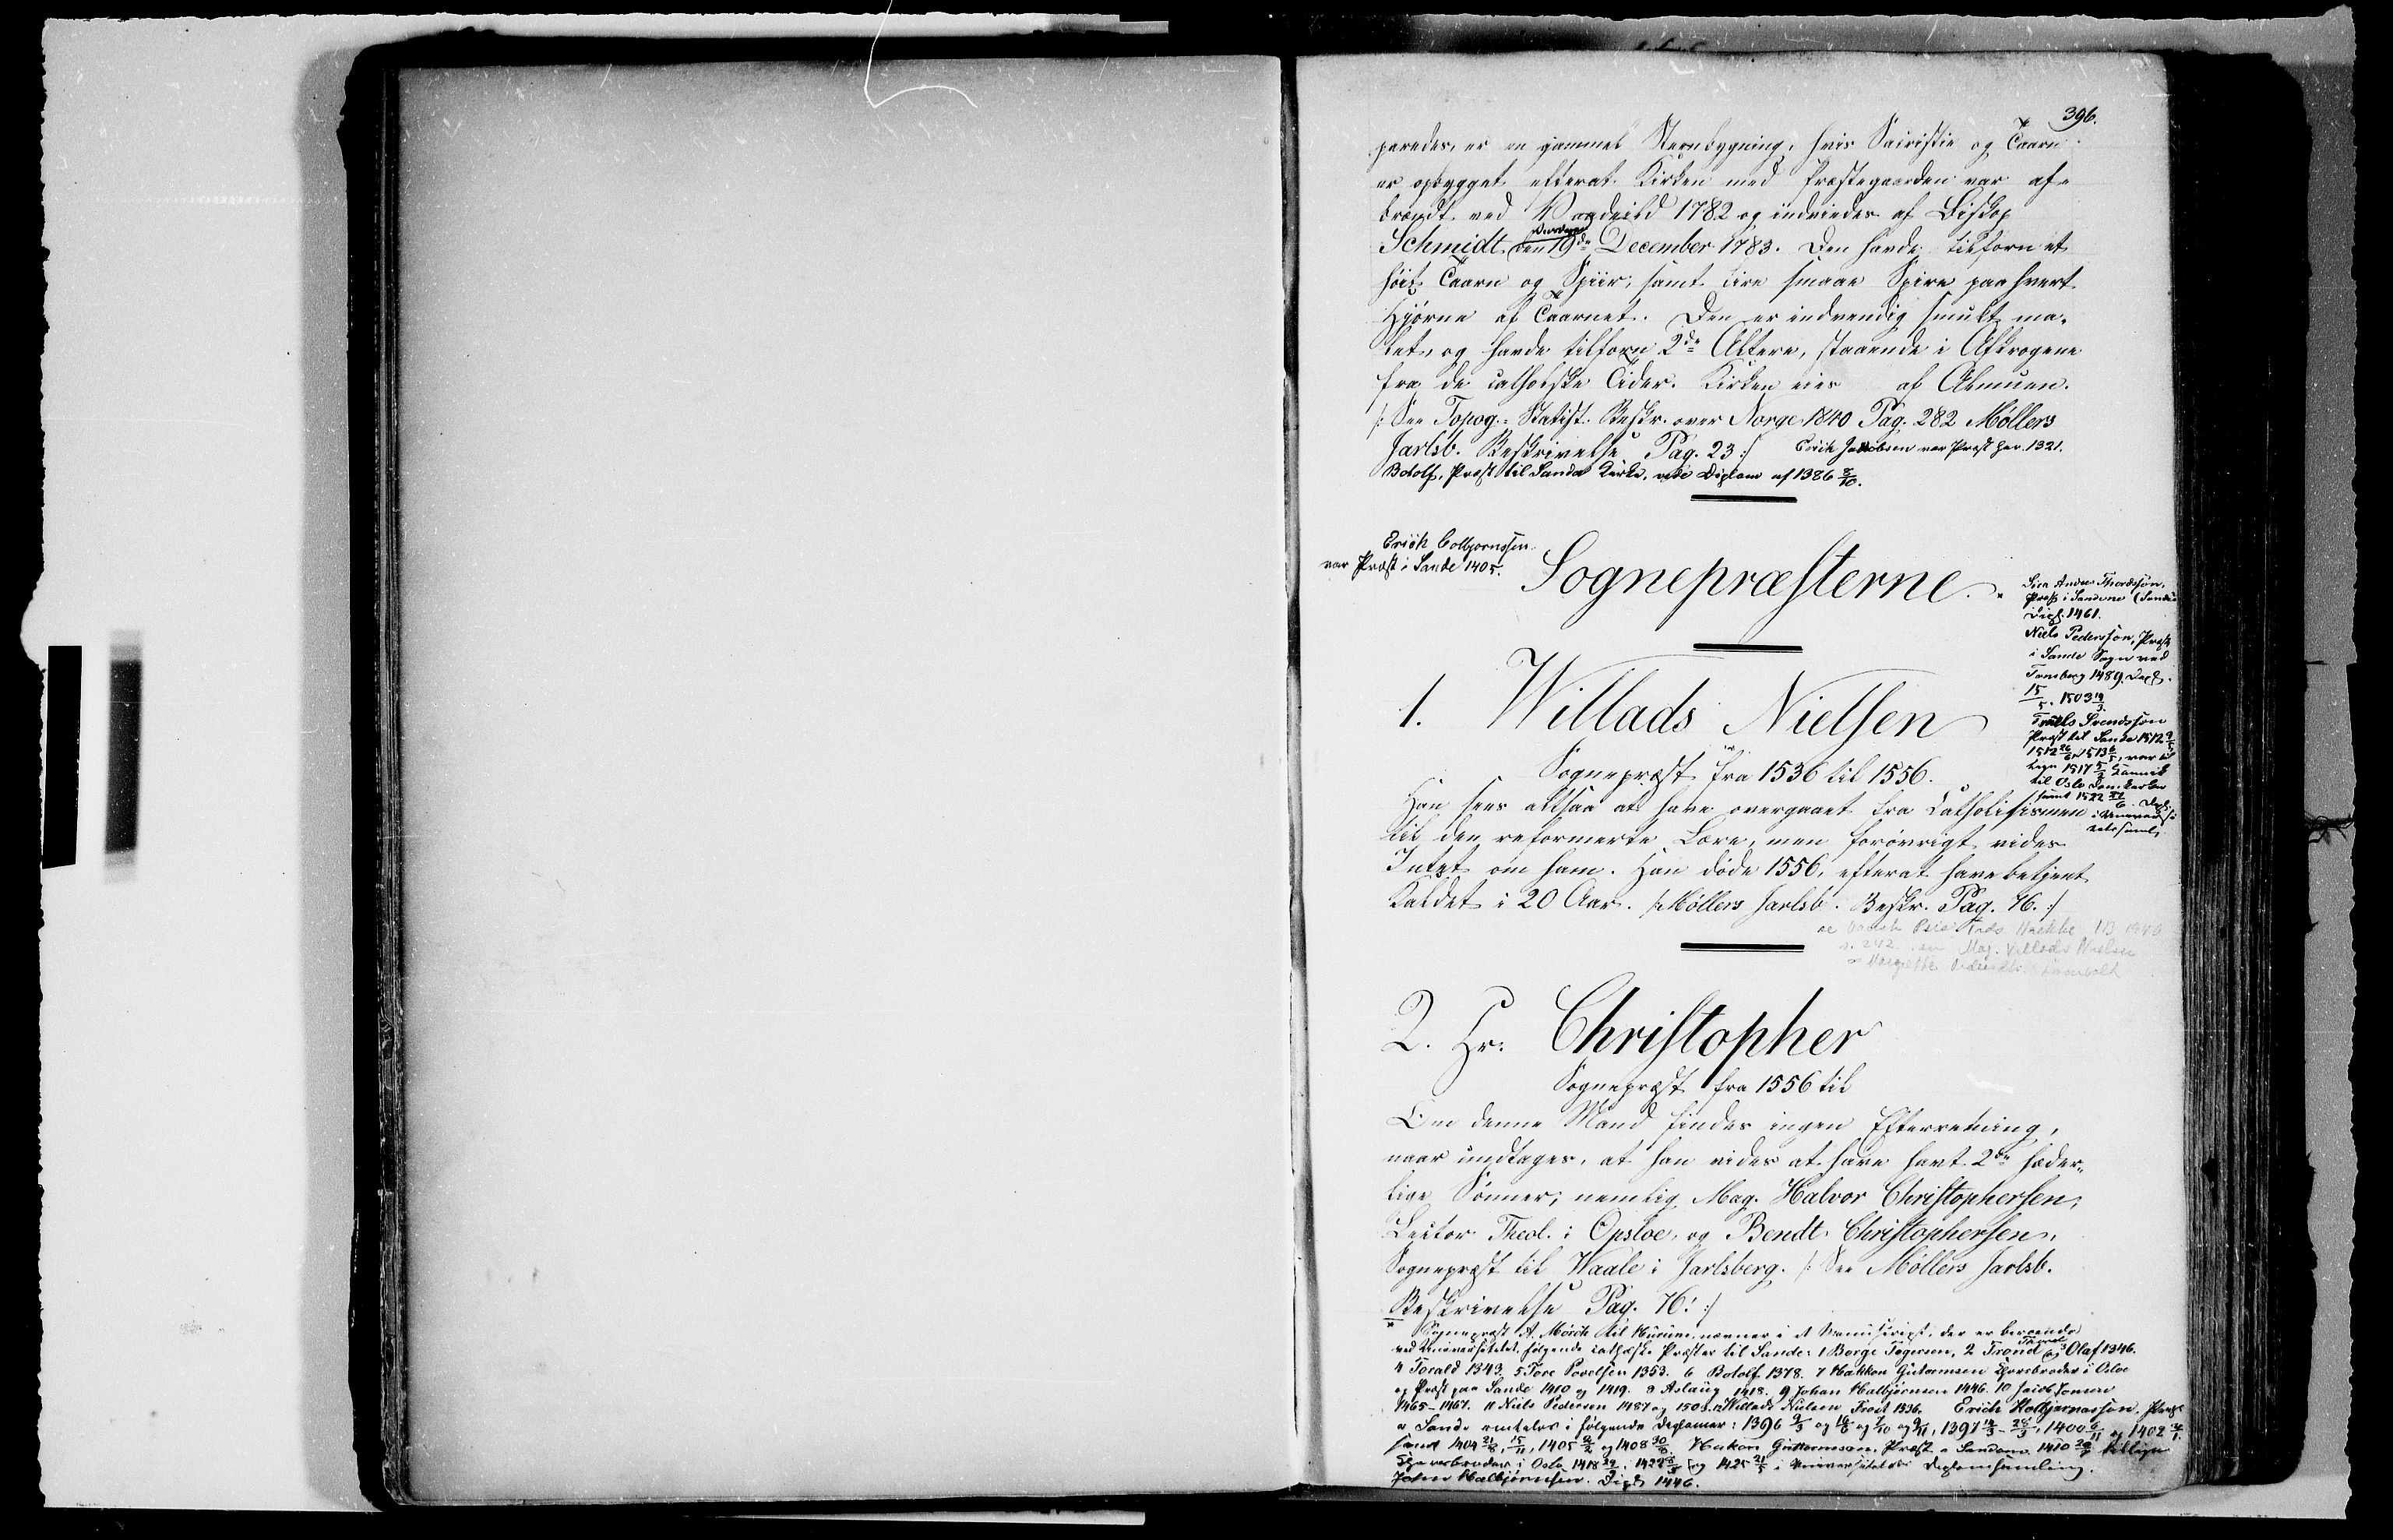 396.
paredes, er en gammel Steenbygning, hvis Sacristie og Taarn
er opbygget efterat Kirken med Præstegaarden var af-
brændt ved Vaadeild 1782 og indviedes af Biskop
Schmidt den 19de December 1783. Den havde tilforn et
høit Taarn og Spiir, samt fire smaae Spire paa hvert
Hjørne af Taarnet. Den er indvendig smukt ma-
let, og havde tilforn 2de Altere, staaende i Afkrogene
fra de catholske Tider. Kirken eies af Almuen.
/: See Topog.-Statist. Beskr. over Norge 1840 Pag. 282 Møllers
Jarlsb. Beskrivelse Pag. 23 :/ Erik Jacobsen var Præst her 1321.
Botolf, Præst til Sande Kirke, Diplom af 1386 8/10.
Erich Colbjørnssen
var Præst i Sande 1405.
Sognepræsterne.
Sira Anders Thordssøn,
Præst i Sandene (Sande)
Dipl. 1461.
Niels Pederssøn, Præst
i Sande Sogn ved
Tønsberg 1489. Dipl.
15/5. 1503 19/3.
Truels Svendssøn
Præst til Sande 1512
til Oslo Domkirke
samt 1522
1. Willads Nielsen
Sognepræst fra 1536 til 1556.
Han sees altsaa at have overgaaet fra Catholisismen
til den reformerte Lære, men forøvrigt vides
Intet om ham. Han døde 1556, efterat have betjent
Kaldet i 20 Aar. /: Møllers Jarlsb. Beskr. Pag. 76. :/
s. 242 Mag. Villads Nielsen
2. Hr. Christopher
Sognepræst fra 1556 til
Om denne Mand findes ingen Efterretning,
naar undtages, at han vides at have havt 2de hæder-
lige Sønner; nemlig Mag. Halvor Christophersen,
Lector Theol. i Opsloe, og Bendt Christophersen,
Sognepræst til Waale i Jarlsberg. /: See Møllers Jarlsb.
Beskrivelse Pag. 76. :/
* Sognepræst A. Mørch til Hurum nævner i et Manuscript, der er beroende
ved Universitetet følgende catholske Præster til Sande: 1 Børge Togersen, 2 Trond og 3 Olaf 1346.
4 Torald 1343. 5 Tore Povelsen 1353. 6 Botolf 1378. 7 Hakkon Gutormsen Chorsbroder i Oslo
og Præst paa Sande 1410 og 1419. 8 Aslaug 1418. 9 Johan Halbjørnsen 1446. 10 Jacob Jonsen
1465-1467. 11 Niels Pedersen 1487 og 1503. 12 Willads Nielsen Prost 1536. Erich Kolbjørnssøn, Præst
a Sande omtales i følgende Diplomer: 1396
samt 1404 Hakon Guttormssøn, Præst a Sandom 1410 tillige
Chorsbroder i Oslo 1418 i Universitetets Diplomsamling.
John Halbjørnsen. Dipl. 1446.